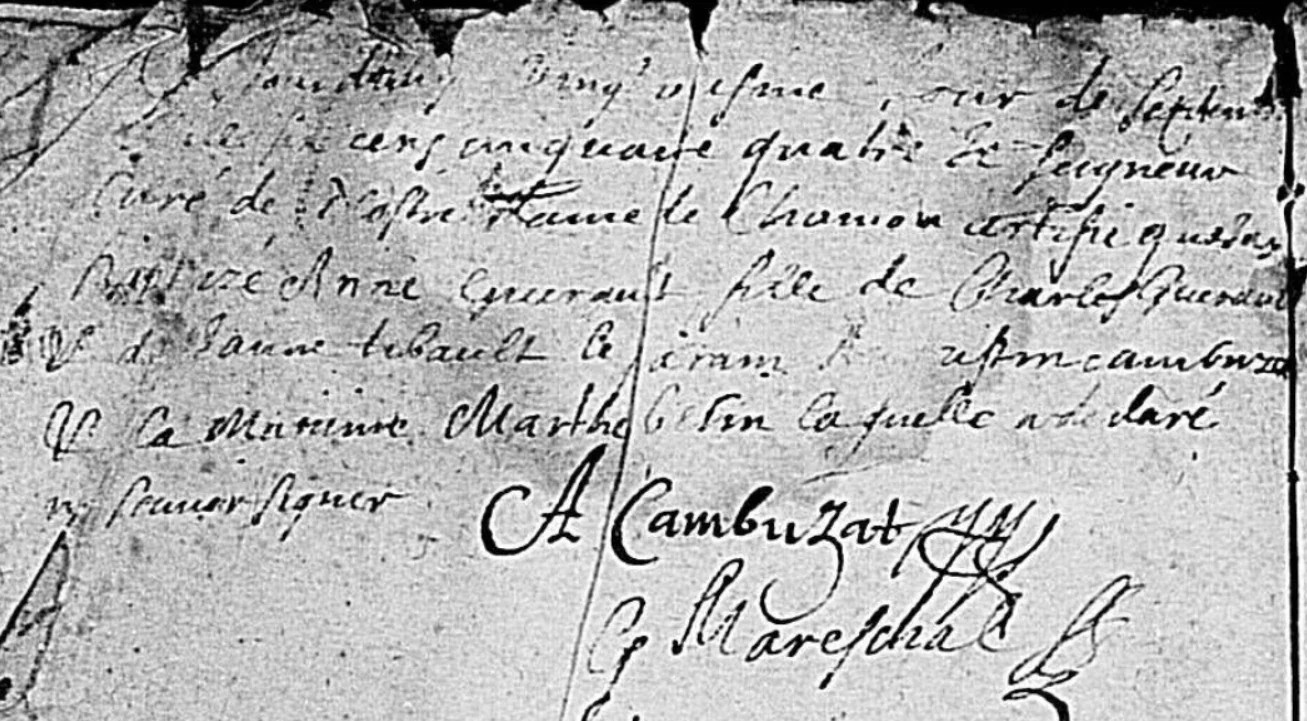 jour de Septem
cens cinquante quatre Seigneur
Curé de Nostre Dame de Chomon certifie
Baptizé Anne Guerault fille de Charles Guerault
& de Janne tibault le parain cambuzat
& la Marinne Marthe betin laquelle a declaré
ne scavoir signer
A Cambuzat
G Mareschal